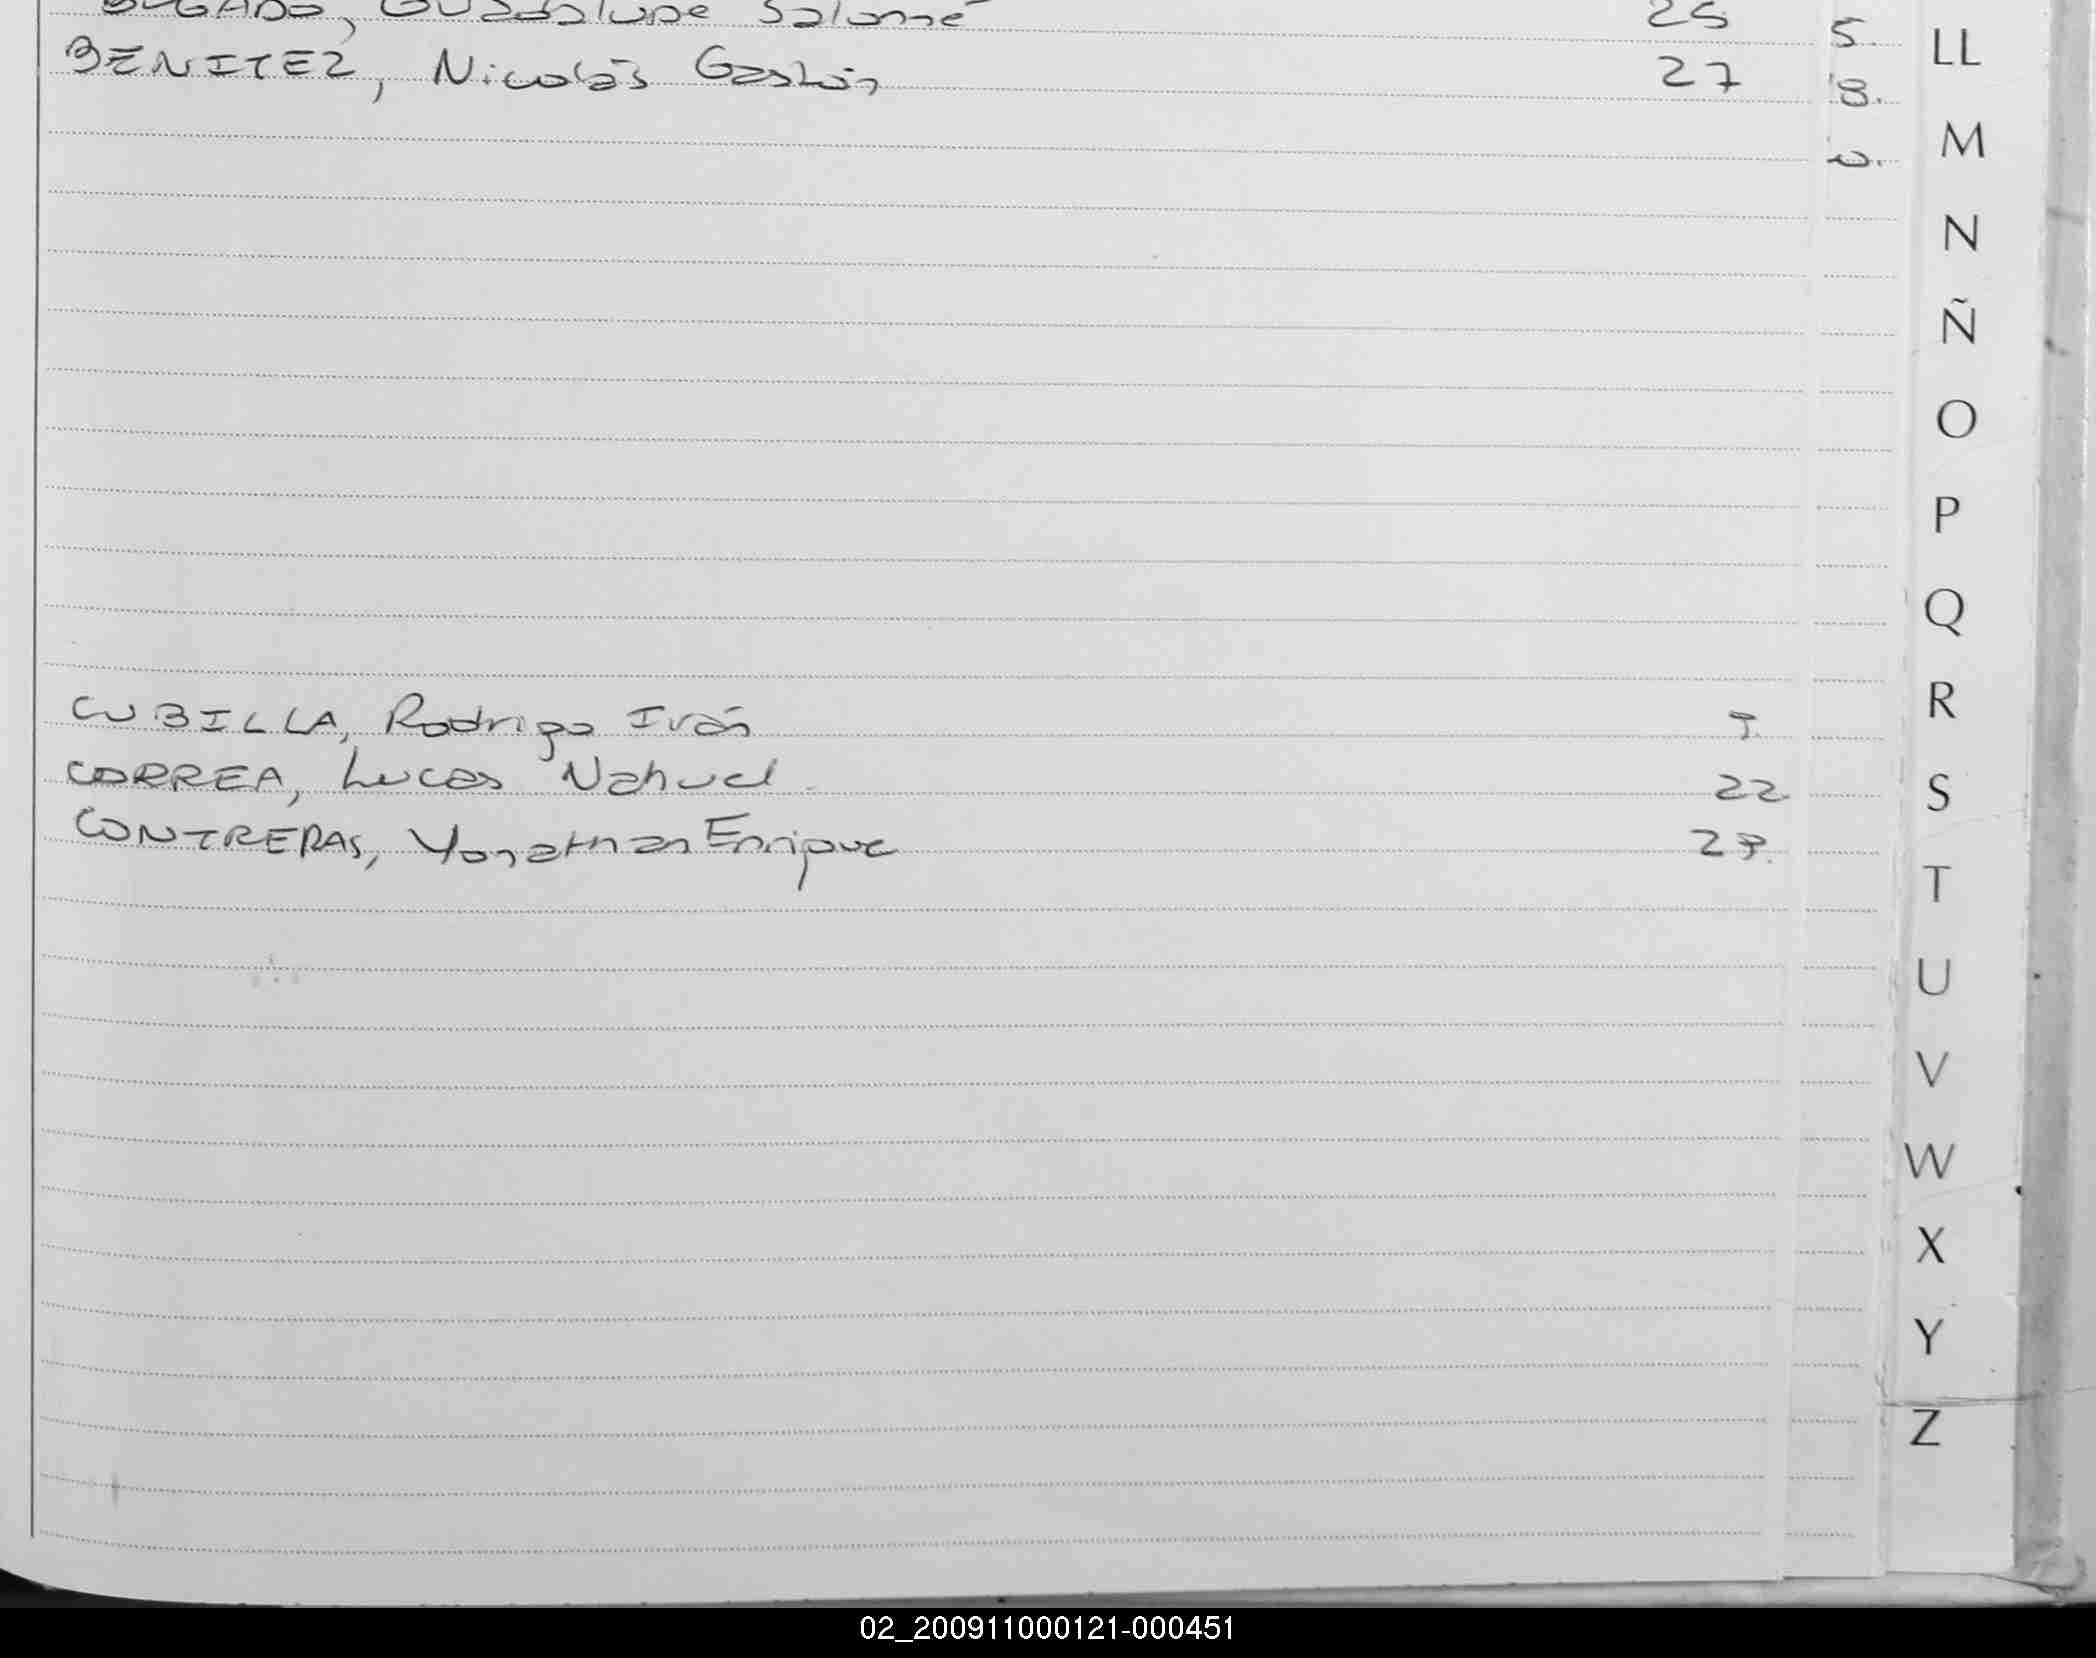 Guadalupe Salomé 25 5.
BENITEZ, Nicolás Gastón 27 8.
CUBILLA, Rodrigo Iván 7.
CORREA, Lucas Nahuel 22
CONTRERAS, Yonathan Enrique 27.
LL
M
N
Ñ
O
P
Q
R
S
T
U
V
W
X
Y
Z
02_200911000121-000451